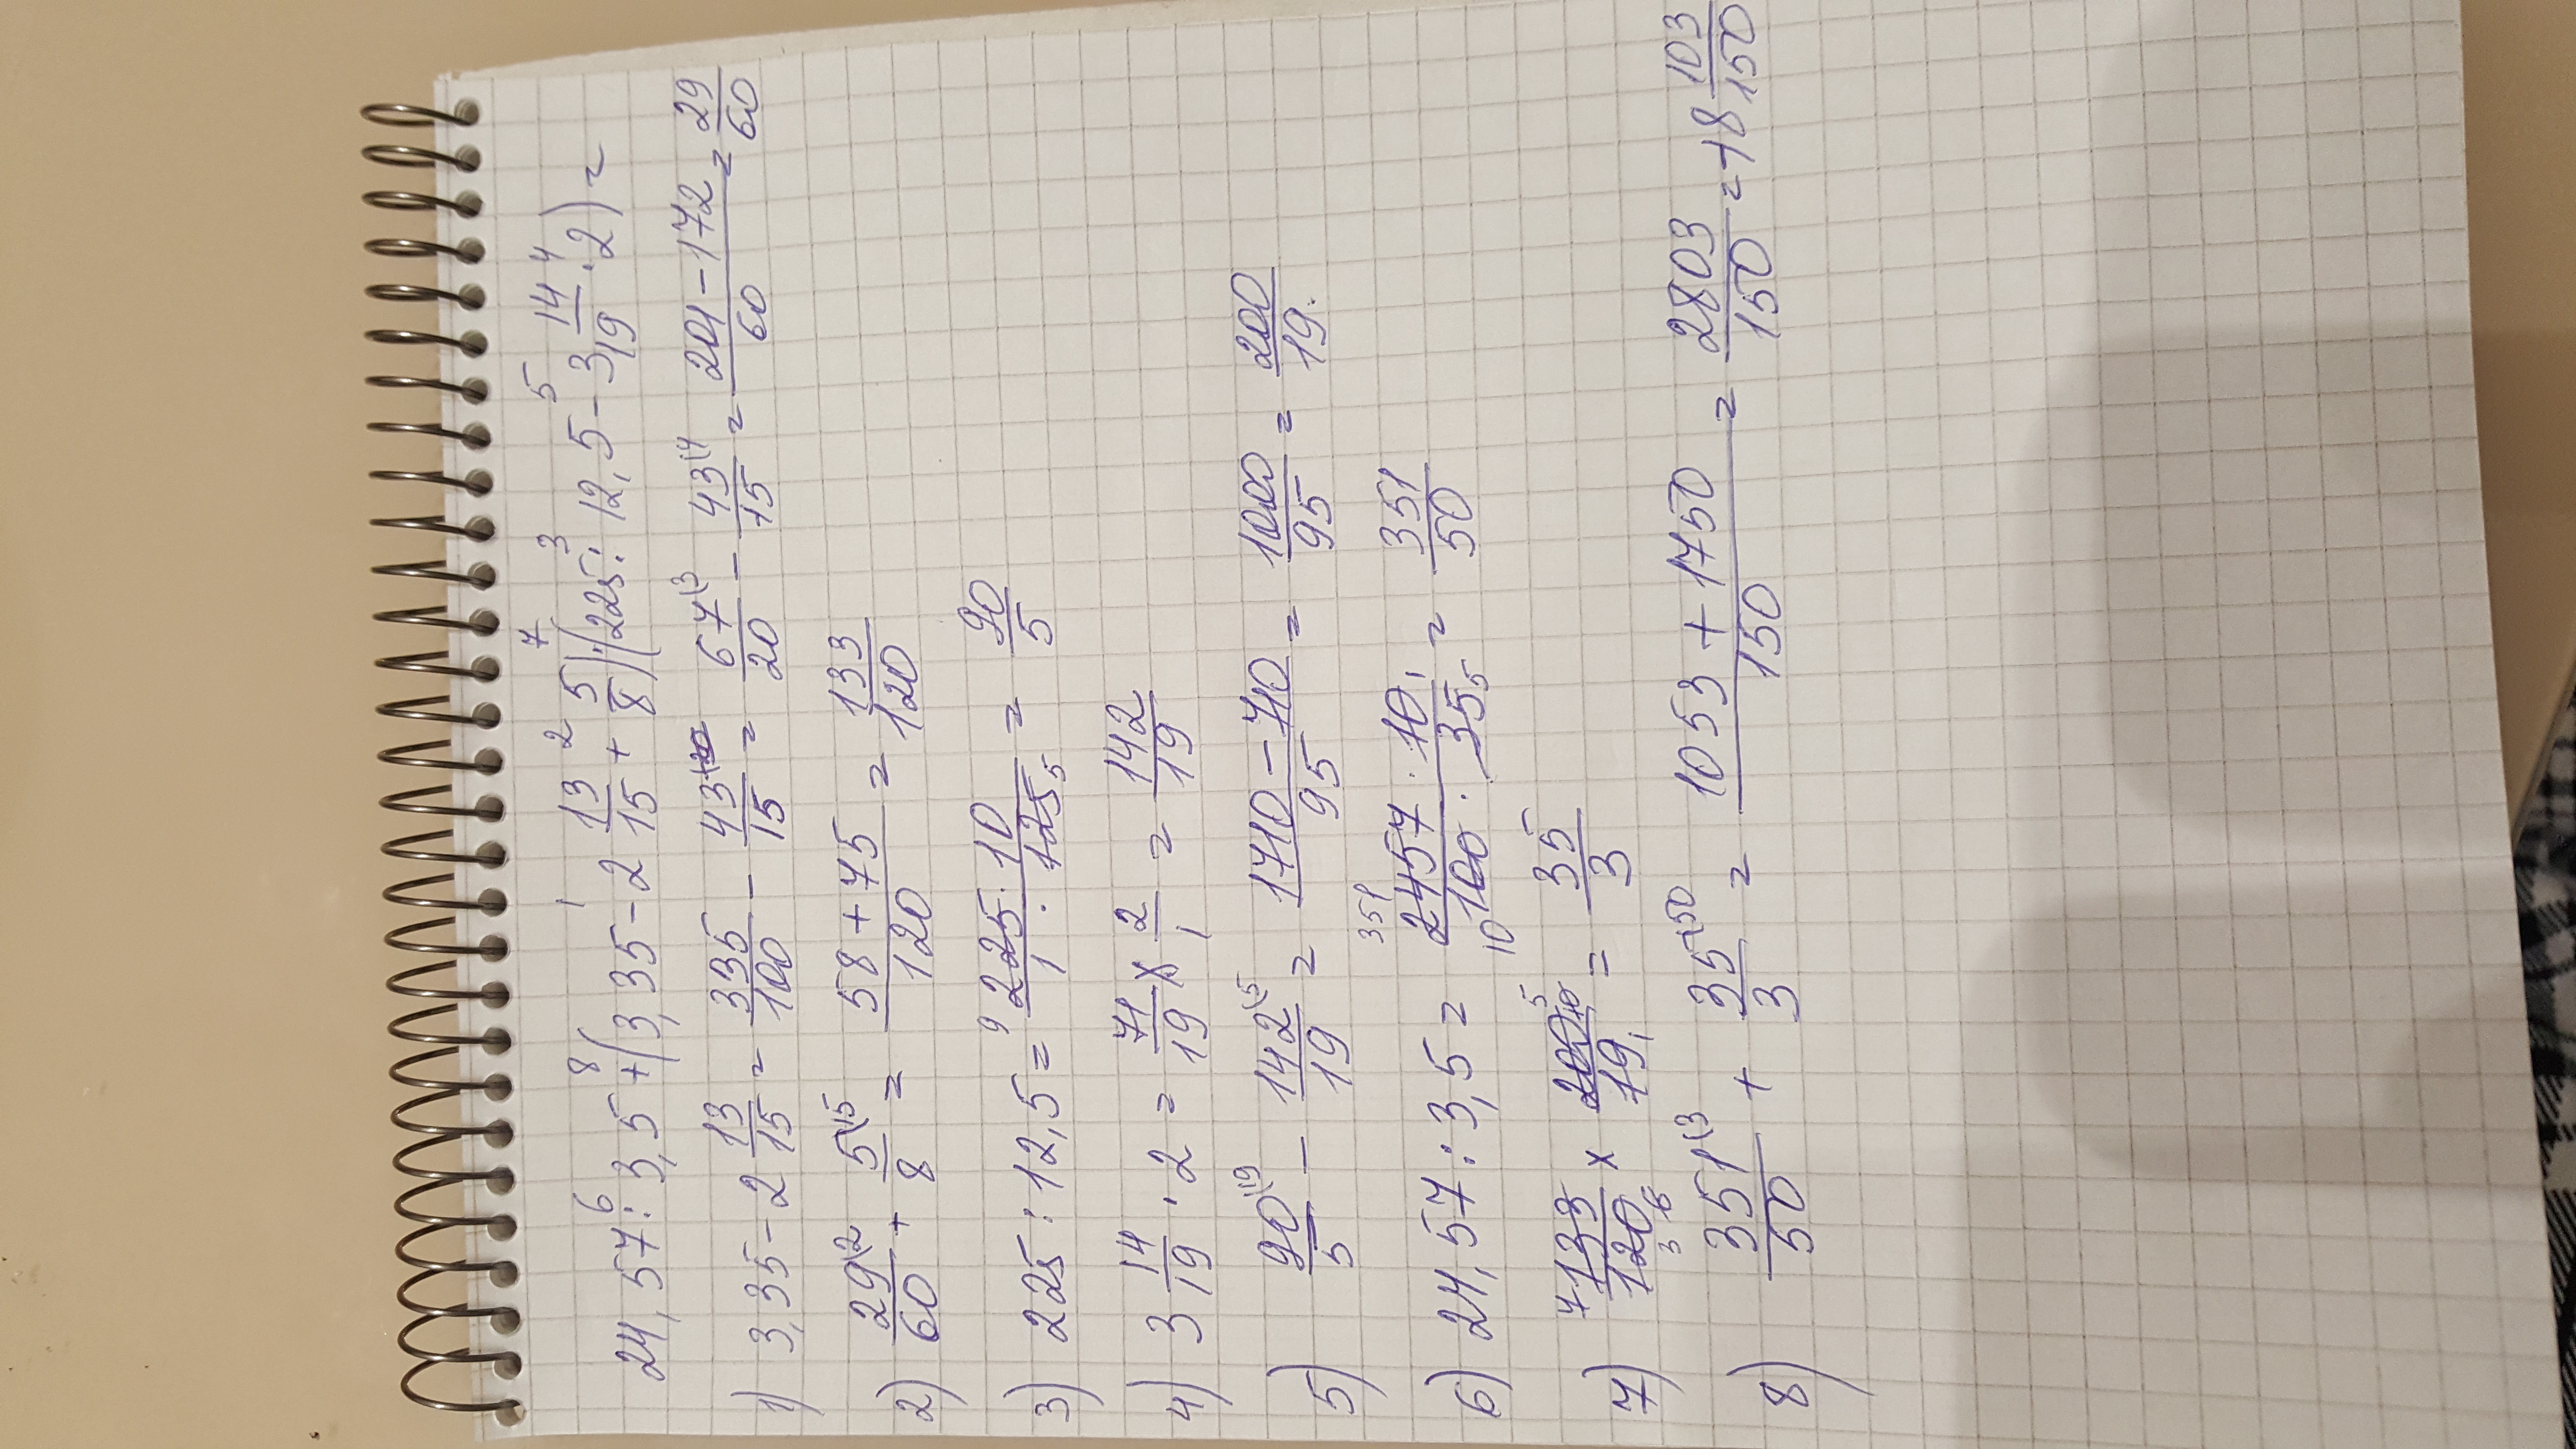 24,57 : 3,5 + (3,35 - 2 13/15 + 5/8) · (225 : 12,5 - 3 14/19 · 2) =
1) 3,35 - 2 13/15 = 335/100 - 43/15 = 67/20 - 43/15 = 201 - 172/60 = 29/60
2) 29/60 + 5/8 = 58 + 75/120 = 133/120
3) 225 : 12,5 = 225 · 10/1 · 125 = 90/5
4) 3 14/19 · 2 = 71/19 × 2/1 = 142/19
5) 90/5 - 142/19 = 1710 - 710/95 = 1000/95 = 200/19
6) 24,57 : 3,5 = 2457 · 10/100 · 35 = 351/50
7) 133/120 × 200/19 = 35/3
8) 351/50 + 35/3 = 1053 + 1750/150 = 2803/150 = 18 103/150